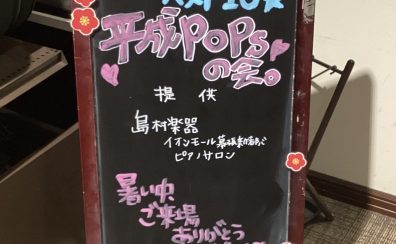 平成POPs
の会。
提 供
島村楽器
イオンモール幕張新都心
ピアノサロン
暑い中
ご来場
ありがとう